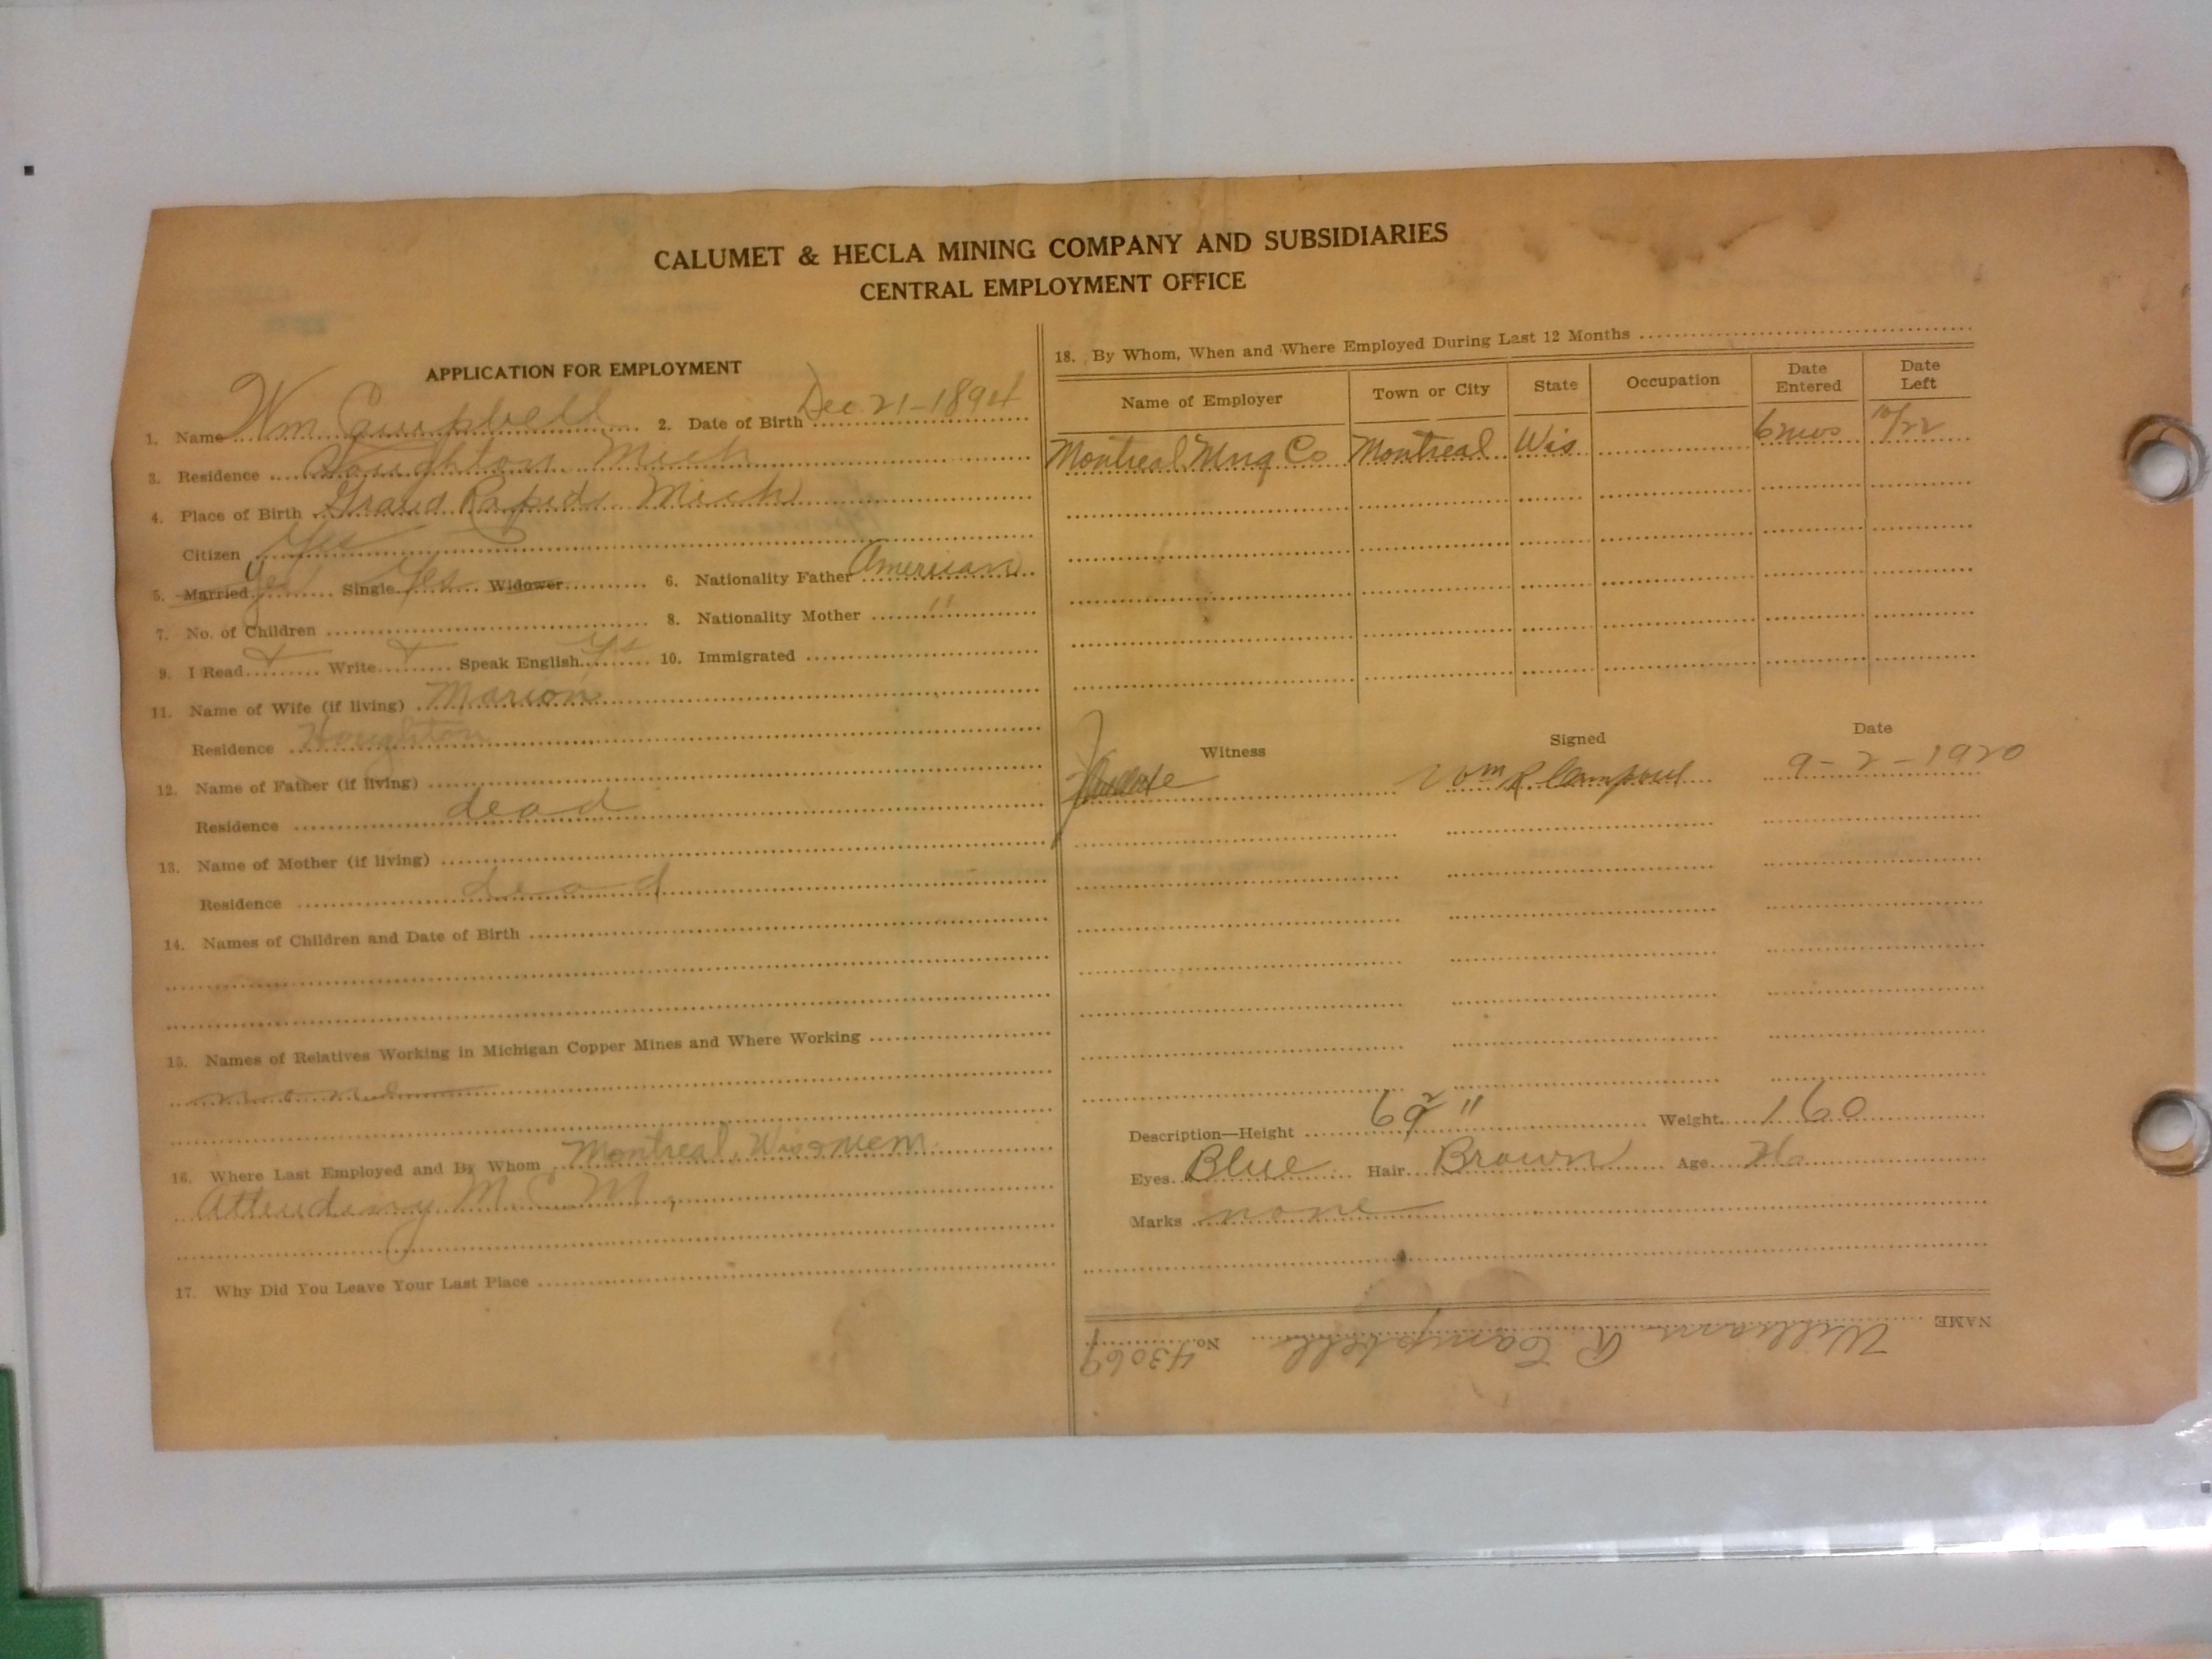 CALUMET & HECLA MINING COMPANY AND SUBSIDIARIES
CENTRAL EMPLOYMENT OFFICE
APPLICATION FOR EMPLOYMENT
1. Name Wm Campbell 2. Date of Birth Dec 21-1894
3. Residence Houghton Mich
4. Place of Birth Grand Rapids Mich
Citizen Yes
5. Married Yes Single Yes Widower 6. Nationality Father American
7. No. of Children 8. Nationality Mother "
9. I Read Write Speak English Yes 10. Immigrated
11. Name of Wife (if living) Marion
Residence Houghton
12. Name of Father (if living)
Residence dead
13. Name of Mother (if living)
Residence dead
14. Names of Children and Date of Birth
15. Names of Relatives Working in Michigan Copper Mines and Where Working
none
16. Where Last Employed and By Whom Montreal,
Attending M. C. M.,
17. Why Did You Leave Your Last Place
18. By Whom, When and Where Employed During Last 12 Months
Name of Employer Town or City State Occupation Date Entered Date Left
Montreal Mng Co Montreal Wis 6 mos
Witness Signed Date
Wm R. Campbell 9-2-1920
Description—Height 69 " Weight 160
Eyes Blue Hair Brown Age 26
Marks none
NAME William R Campbell No. 43069